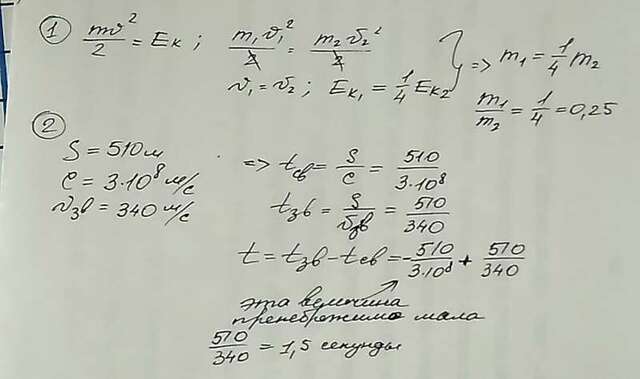 ① mv²/2 = Eк ; m₁v₁²/2 = m₂v₂²/2
v₁ = v₂ ; Eк₁ = 1/4 Eк₂ } => m₁ = 1/4 m₂
m₁/m₂ = 1/4 = 0,25
②
S = 510 м => tсв = S/c = 510/3·10⁸
c = 3·10⁸ м/с
vзв = 340 м/с tзв = S/vзв = 510/340
t = tзв - tсв = -510/3·10⁸ + 510/340
эта величина
пренебрежимо мала
510/340 = 1,5 секунды